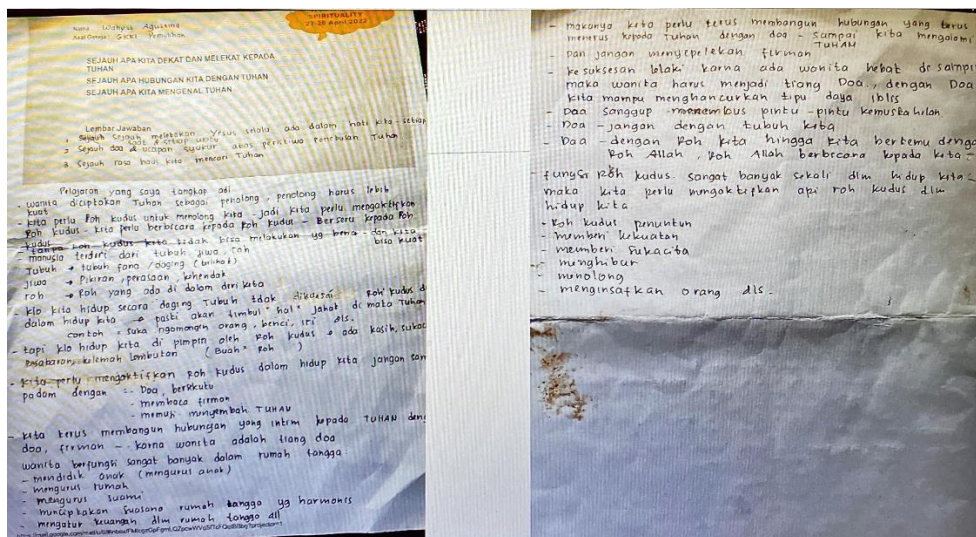 SPIRITUALITY
27-28 April 2022
Nama Wahyu Agustina
Asal Gereja: GKKI Pemulihan
SEJAUH APA KITA DEKAT DAN MELEKAT KEPADA
TUHAN
SEJAUH APA HUBUNGAN KITA DENGAN TUHAN
SEJAUH APA KITA MENGENAL TUHAN
Lembar Jawaban
1 Sejauh meletakan Yesus selalu ada dalam hati kita - setiap
saat & setiap
2 Sejauh doa & ucapan syukur atas peristiwa Tuhan
3 Sejauh rasa haus kita mencari Tuhan
Pelajaran yang saya tangkap adl
- wanita diciptakan Tuhan sebagai penolong, penolong harus lebih
kuat
- kita perlu Roh kudus untuk menolong kita - jadi kita perlu mengaktifkan
Roh kudus - kita perlu berbicara kepada Roh kudus - Berseru kepada Roh
kudus
- tanpa roh kudus kita tidak bisa melakukan yg - dan kita
bisa kuat
- manusia terdiri dari tubuh jiwa, roh
Tubuh → tubuh fana / daging
jiwa → Pikiran, perasaan, kehendak
roh → Roh yang ada di dalam diri kita
- klo kita hidup secara daging Tubuh tidak dikuasai Roh kudus d
dalam hidup kita → pasti akan timbul" hal" jahat di mata Tuhan
contoh: suka ngomongin orang, benci, iri dls.
- tapi klo hidup kita di pimpin oleh Roh kudus → ada kasih, sukac
kesabaran, kelemah lembutan (Buah" Roh)
- kita perlu mengaktifkan Roh kudus dalam hidup kita jangan sam
padam dengan :- Doa, bersekutu
- membaca firman
- memuji - menyembah TUHAN
- kita terus membangun hubungan yang intim kepada TUHAN den
doa, firman - karna wanita adalah tiang doa
wanita berfungsi sangat banyak dalam rumah tangga
- mendidik anak (mengurus anak)
- mengurus rumah
- mengurus suami
- menciptakan suasana rumah tangga yg harmonis
- mengatur keuangan dlm rumah tangga dll
- makanya kita perlu terus membangun hubungan yang terus
menerus kepada Tuhan dengan doa - sampai kita mengalami
TUHAN
Dan jangan menyepelekan firman
- kesuksesan lelaki karna ada wanita hebat di sampi
maka wanita harus menjadi tiang Doa, dengan Doa
kita mampu menghancurkan tipu daya iblis
- Doa sanggup menembus pintu-pintu kemustahilan
Doa - jangan dengan tubuh kita
- Doa - dengan Roh kita hingga kita bertemu denga
Roh Allah, Roh Allah berbicara kepada kita -
- fungsi Roh kudus sangat banyak sekali dlm hidup kita
maka kita perlu mengaktifkan api roh kudus dlm
hidup kita
- Roh kudus penuntun
- memberi kekuatan
- memberi sukacita
- menghibur
- menolong
- menginsafkan orang dls.